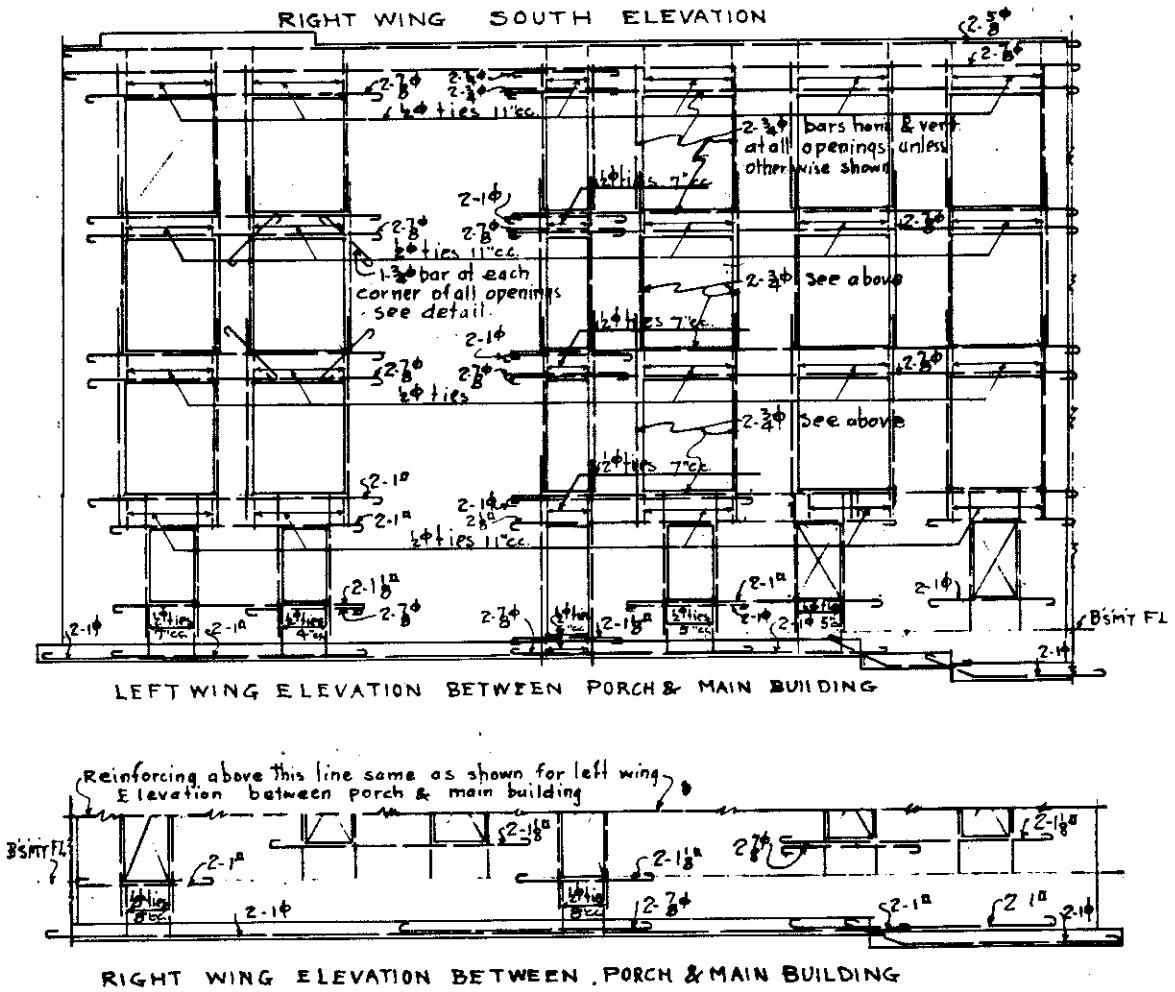 RIGHT WING SOUTH ELEVATION
2-5/8ϕ
2-7/8ϕ
2-7/8ϕ
2-3/4ϕ
2-3/4ϕ
1/2ϕ ties 11"cc.
2-3/4ϕ bars horiz & vert.
at all openings unless
otherwise shown
1/2ϕ ties 7"cc.
2-1ϕ
2-7/8ϕ
2-7/8ϕ
2-7/8ϕ
1/2ϕ ties 11"cc.
1-3/4ϕ bar at each
corner of all openings
see detail.
2-3/4ϕ see above
1/2ϕ ties 7"cc.
2-1ϕ
2-7/8ϕ
2-7/8ϕ
2-7/8ϕ
1/2ϕ ties
2-3/4ϕ see above
1/2ϕ ties 7"cc.
2-1¤
2-1ϕ
2-1¤
1/2ϕ ties 11"cc.
2-1 1/8¤
2-1¤
2-1ϕ
1/2ϕ ties
1/2ϕ ties
4"cc
2-7/8ϕ
2-7/8ϕ
1/2ϕ ties
2-1 1/8¤
1/2ϕ ties
5"cc
2-1ϕ
BSMT FL
2-1ϕ
2-1¤
2-1ϕ
2-1ϕ
LEFT WING ELEVATION BETWEEN PORCH & MAIN BUILDING
Reinforcing above this line same as shown for left wing
Elevation between porch & main building
BSMT FL
2-1¤
2-1 1/8¤
2-1 1/8¤
2-7/8ϕ
2-1 1/8¤
1/2ϕ ties
8"cc
1/2ϕ ties
8"cc
2-1ϕ
2-7/8ϕ
2-1¤
2-1¤
2-1ϕ
RIGHT WING ELEVATION BETWEEN PORCH & MAIN BUILDING